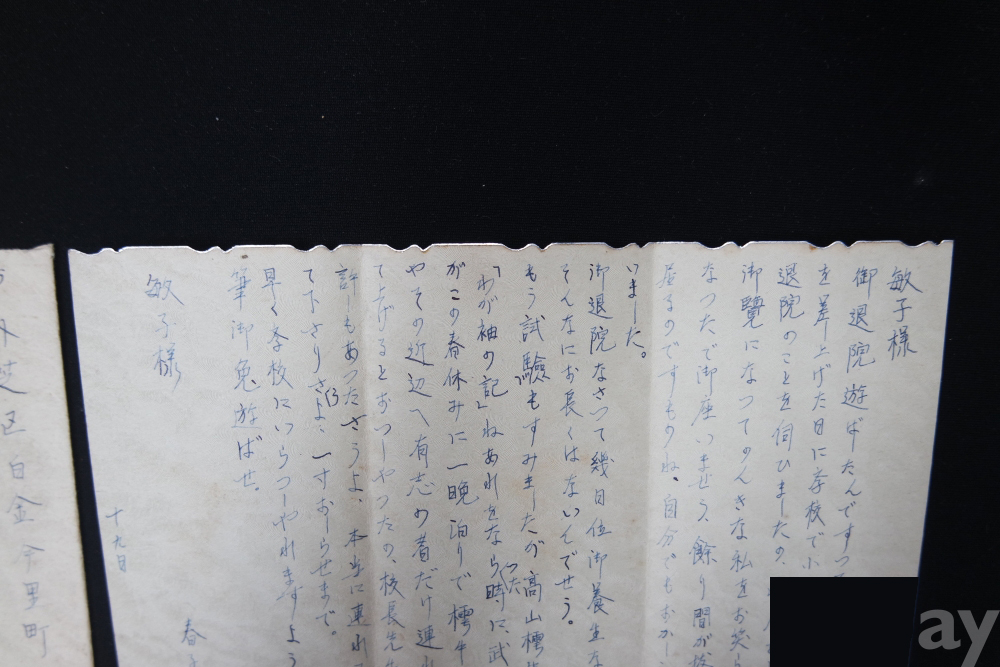 敏子様
御退院遊ばしたんですつて
を差上げた日に学校で小
退院のことを伺ひましたの
御覧になつてのんきな私をお笑ら
なつたで御座いませう、餘り間が抜
居るのですものね、自分でもおかし
いました。
御退院なさつて幾日位御養生な
そんなにお長くはないんでせう。
もう試験もすみましたが高山樗牛
「わが袖の記」ねあれをならつた時に、武
がこの春休みに一晩泊りで樗牛
やその近辺へ有志の者だけ連れ
て上げるとおつしやつたの、校長先生
許しもあつたさうよ、本当に連れて
て下さりさよ、一寸おしらせまで。
早く学校にいらつしやれますよう
筆御免遊ばせ。
十九日
春
敏子様
外芝区白金今里町
ay